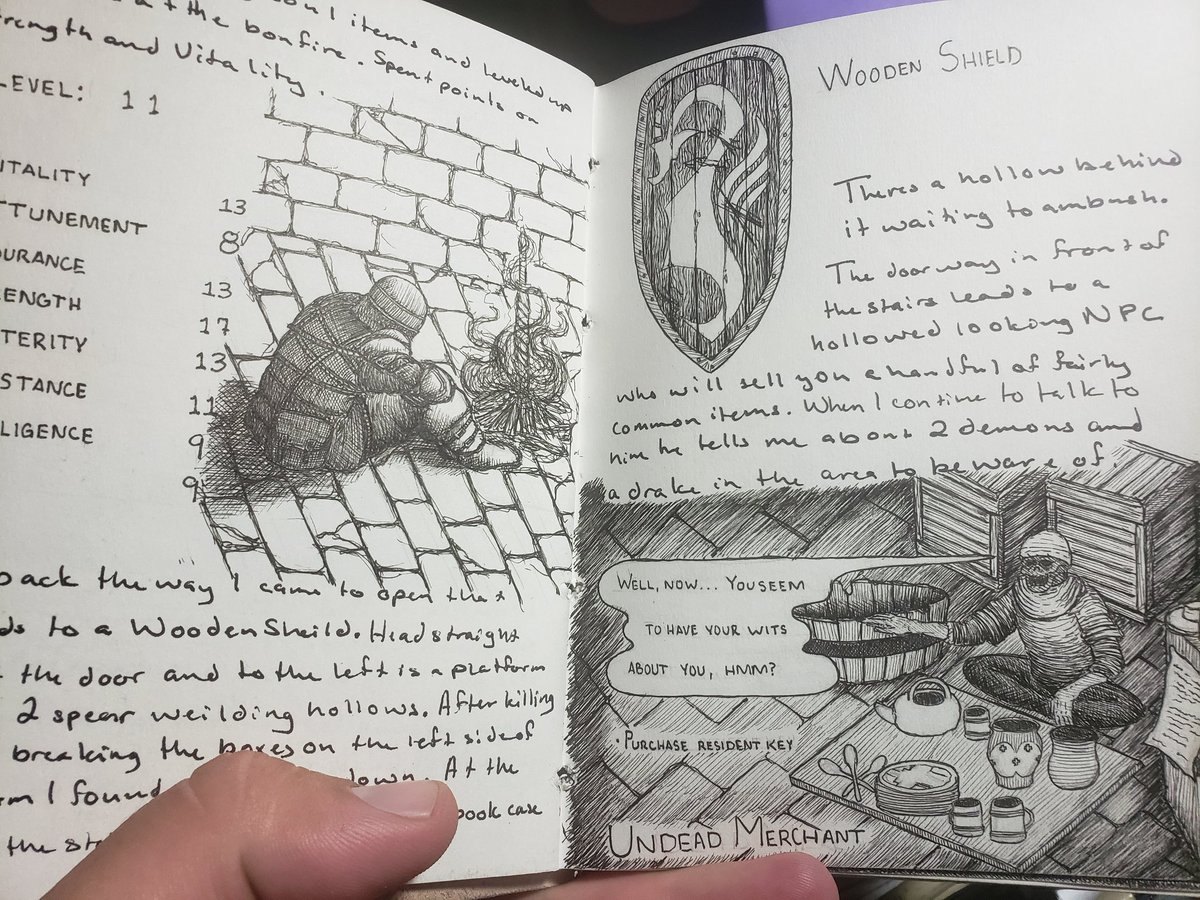 items and leveled up
at the bonfire. Spent points on
and Vitality.
LEVEL: 11
ITALITY 13
TTUNEMENT 8
URANCE 13
ENGTH 17
TERITY 13
STANCE 11
LIGENCE 9
9
back the way I came to open the
ds to a Wooden Sheild. Head straight
the door and to the left is a platform
2 spear weilding hollows. After killing
breaking the boxes on the left side of
m I found down. At the
book case
the st
WOODEN SHIELD
Theres a hollow behind
it waiting to ambush.
The doorway in front of
the stairs leads to a
hollowed looking NPC
who will sell you a handful of fairly
common items. When I continue to talk to
him he tells me about 2 demons and
a drake in the area to beware of.
WELL, NOW... YOU SEEM
TO HAVE YOUR WITS
ABOUT YOU, HMM?
• PURCHASE RESIDENT KEY
UNDEAD MERCHANT